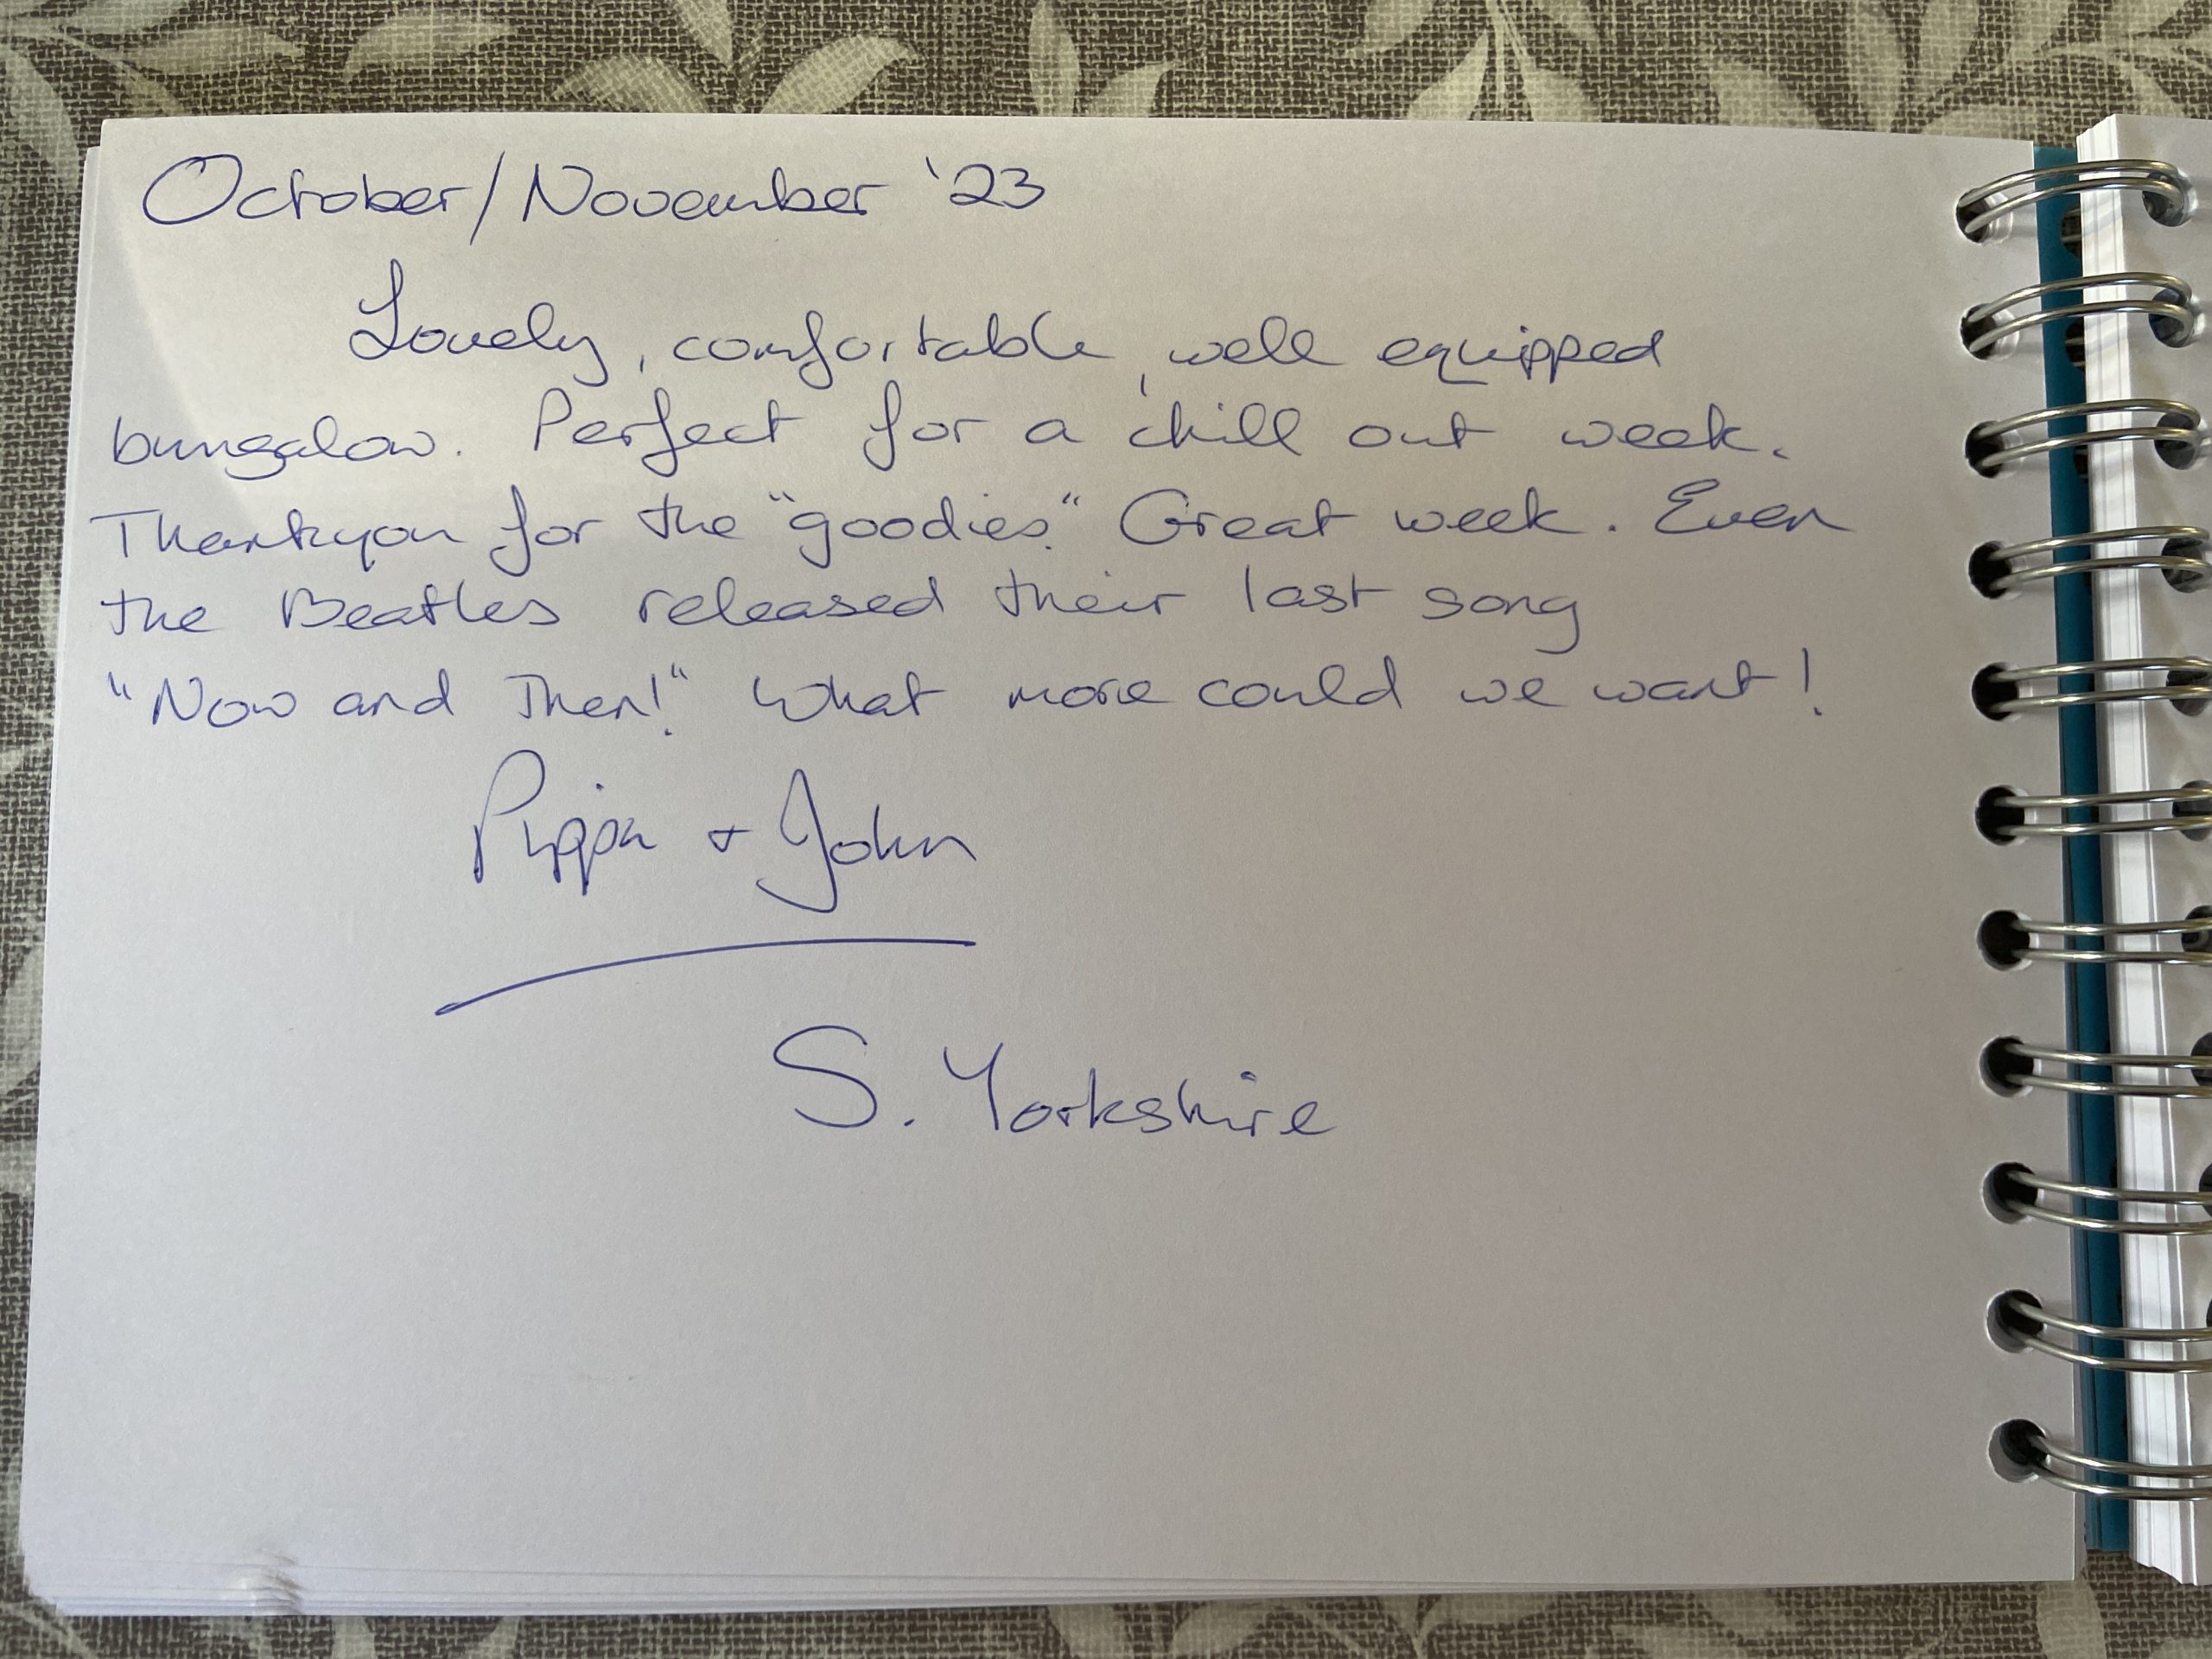 October/November '23
Lovely, comfortable, well equipped
bungalow. Perfect for a chill out week.
Thankyou for the "goodies." Great week. Even
the Beatles released their last song
"Now and Then!" What more could we want!
Pippa + John
S. Yorkshire